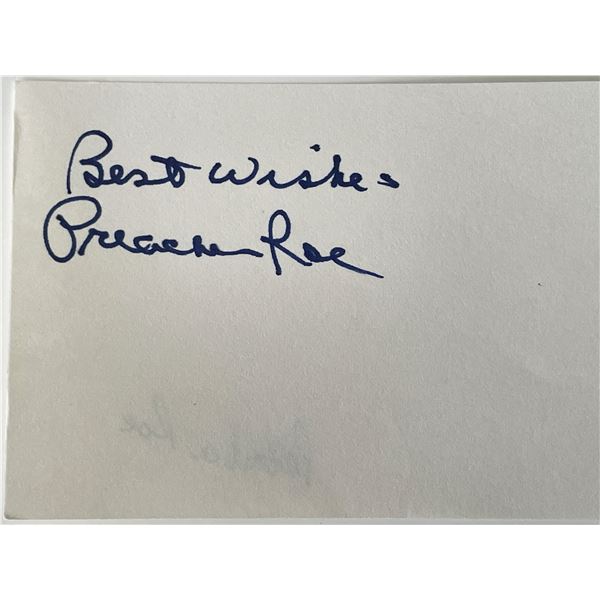 Best Wishes
Preacher Roe